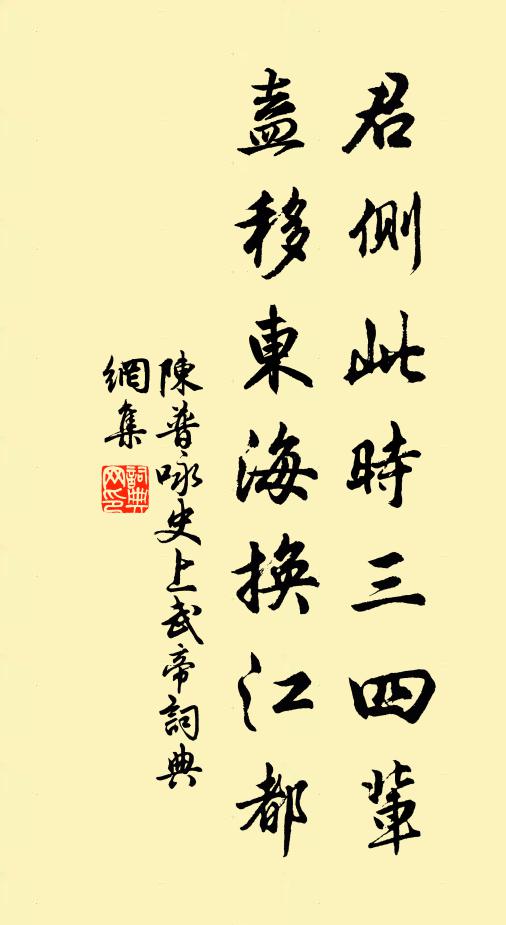 君側此時三四輩
盍移東海換江都
陳普咏史上武帝詞典
網集
詞典
网印